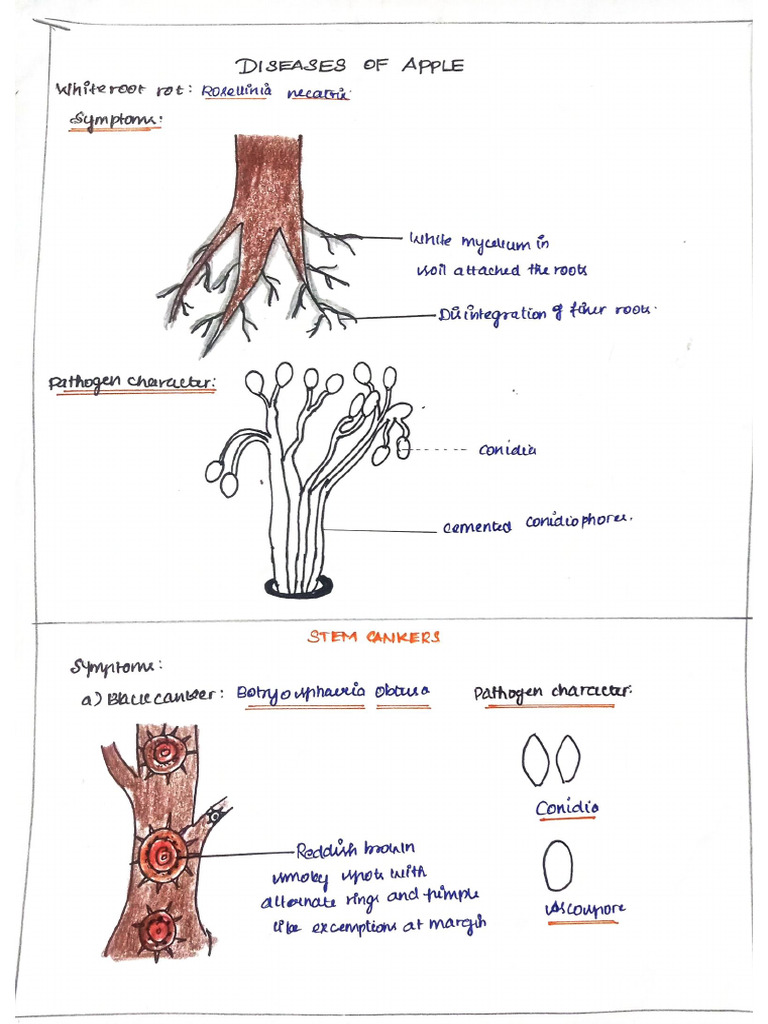 DISEASES OF APPLE
White root rot: Rosellinia necatrix
Symptoms:
White mycelium in
soil attached the roots
Disintegration of finer roots.
Pathogen character:
Conidia
Cemented Conidiophores.
STEM CANKERS
Symptoms:
a) Black canker: Botryosphaeria obtusa
Pathogen character:
Conidia
Reddish brown
smoky spots with
alternate rings and pimple
like excemptions at margin
Ascospore